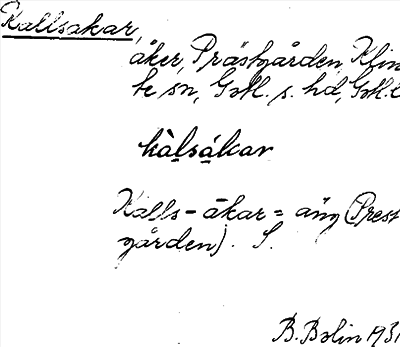 Kallsakar,
åker, Prästgården, Klin
te sn, Gotl. s. hd, Gotl. l
kàlsákar
Kalls-åkar = äng (Prest
gården). S.
B. Bolin 1931